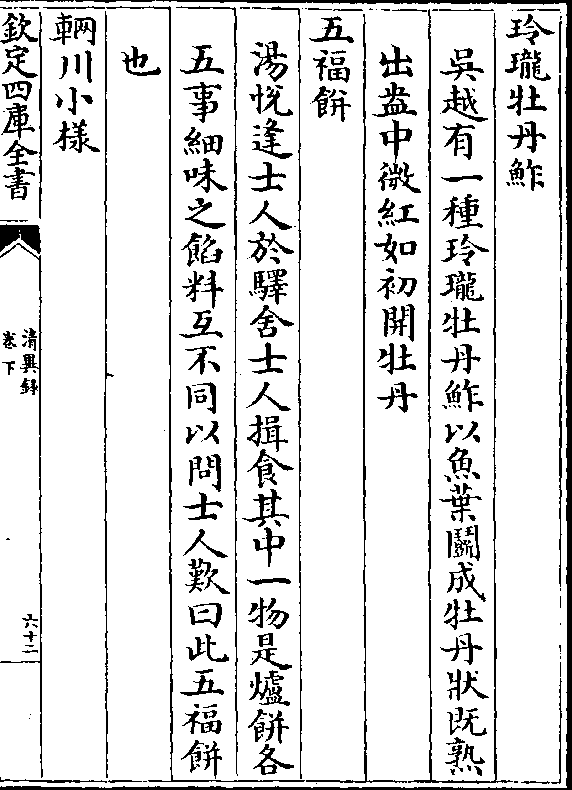 玲瓏牡丹鮓
吳越有一種玲瓏牡丹鮓以魚葉鬭成牡丹狀既熟
出盎中微紅如初開牡丹
五福餅
湯悅逢士人於驛舍士人揖食其中一物是爐餅各
五事細味之餡料互不同以問士人歎曰此五福餅
也
輞川小樣
欽定四庫全書
清異錄
卷下
六十二